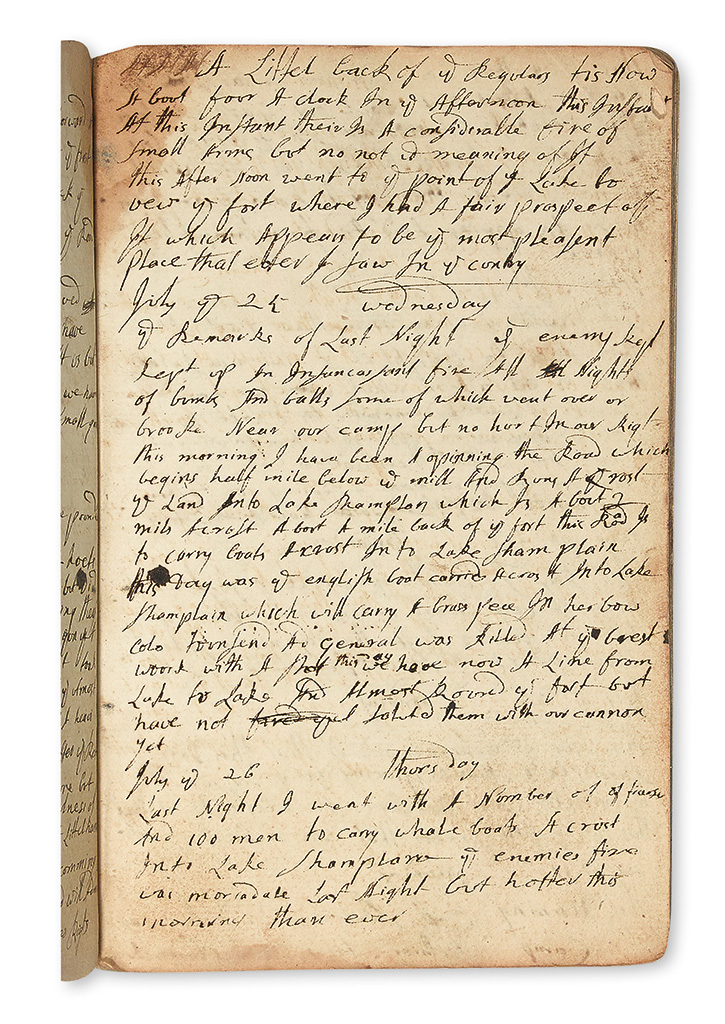 A Littel back of ye Regulars tis Now
A bout foor A clock In ye Afternoon this Insta
At this Instant their Is A considerable fire of
small Arms but no not ye meaning of It
this After Noon went to ye point of ye Lake to
vew ye fort where I had A fair prospect off
It which Appears to be ye most pleasent
place that ever I saw In ye contry
July ye 25 wednesday
ye Remarks of Last Night ye enemy kept
kept up An Insuncassant fire All Night
of bumbs And balls some of which went over or
brooke Near our camp but no hurt In our Rig
this morning I have been A opinning the Road which
begins half mile below ye mill And Runs A Crost
ye Land Into Lake Shamplan which Is A bout 2
mils Acrost A bout A mile back of ye fort this Rod Is
to carry boats Acrost Into Lake Sham plain
this Day was ye english boat carrid Across t Into Lake
Shamplain which will carry A brass peece In her bow
colo Townsend Ad General was Killed At ye brest
woork with A Shot this day we have now A Line from
Lake to Lake And Almost Round ye fort but
have not saluted them with our cannon
yet
July ye 26 thors day
Last Night I went with A Nomber of
And 100 men to carry whale boats A crost
Into Lake Shamplane ye enemies fire
was moriadate Last Night but hotter this
morning than ever